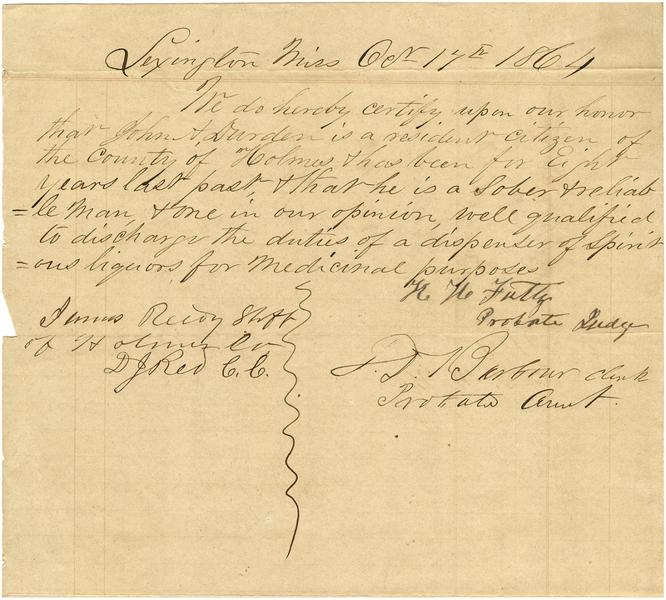 Lexington Miss Oct 17th 1864
We do hereby certify upon our honor
that John A, Durden is a resident citizen of
the County of Holmes & has been for Eight
years last past & that he is a Sober & reliab
=le Man, & one in our opinion, well qualified
to discharge the duties of a dispenser of Spirit
=ous liquors for Medicinal purposes
Probate Judge
James Shff
of Holmes Co
D J Red C. C.
J. D. Barbour clerk
Probate Court.